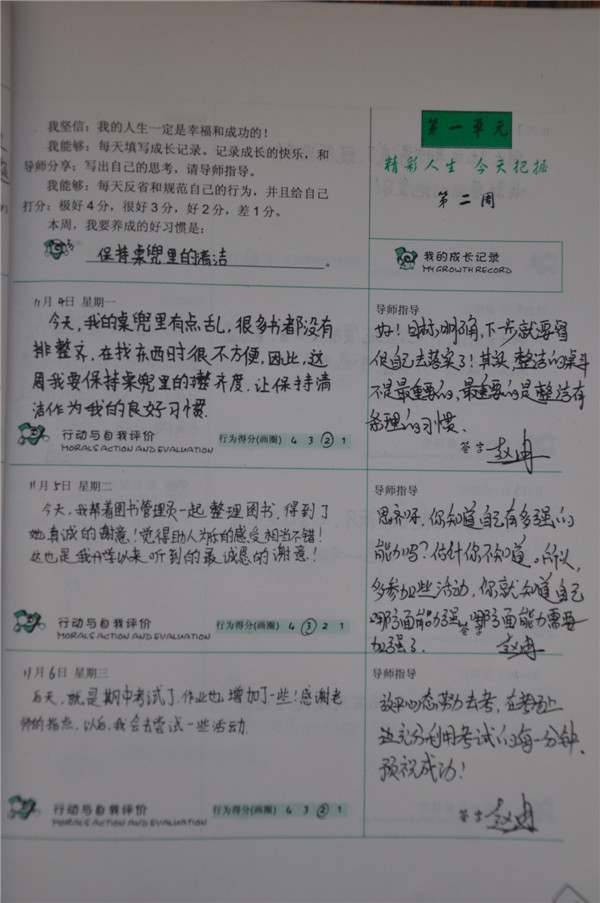 我坚信：我的人生一定是幸福和成功的！
我能够：每天填写成长记录。记录成长的快乐，和
导师分享；写出自己的思考，请导师指导。
我能够：每天反省和规范自己的行为，并且给自己
打分：极好4分，很好3分，好2分，差1分。
本周，我要养成的好习惯是：
保持桌兜里的清洁。
第一单元
精彩人生 今天把握
第二周
我的成长记录
MY GROWTH RECORD
11月4日 星期一
今天，我的桌兜里有点乱，很多书都没有
排整齐，在找东西时很不方便，因此，这
周我要保持桌兜里的整齐度，让保持清
洁作为我的良好习惯.
行动与自我评价
MORALS ACTION AND EVALUATION
行为得分(画圈) 4 3 2 1
导师指导
好！目标明确，下步就要督
促自己去落实了！其实，整洁的桌斗
不是最重要的，最重要的是整洁有
条理的习惯.
签字 赵冉
11月5日 星期二
今天，我帮着图书管理员一起整理图书，得到了
她真诚的谢意！觉得助人为乐的感受相当不错！
这也是我开学以来听到的最诚恳的谢意！
行动与自我评价
MORALS ACTION AND EVALUATION
行为得分(画圈) 4 3 2 1
导师指导
你知道自己有多强的
能力吗？估计你不知道，所以，
多参加些活动，你就知道自己
哪方面能力强，哪方面能力需要
加强了.
签字 赵冉
11月6日 星期三
后天，就是期中考试了，作业也增加了一些！感谢老
师的指点，以后，我会去尝试一些活动.
行动与自我评价
MORALS ACTION AND EVALUATION
行为得分(画圈) 4 3 2 1
导师指导
放平心态努力去考，在考场上
充分利用考试的每一分钟，
预祝成功！
签字 赵冉